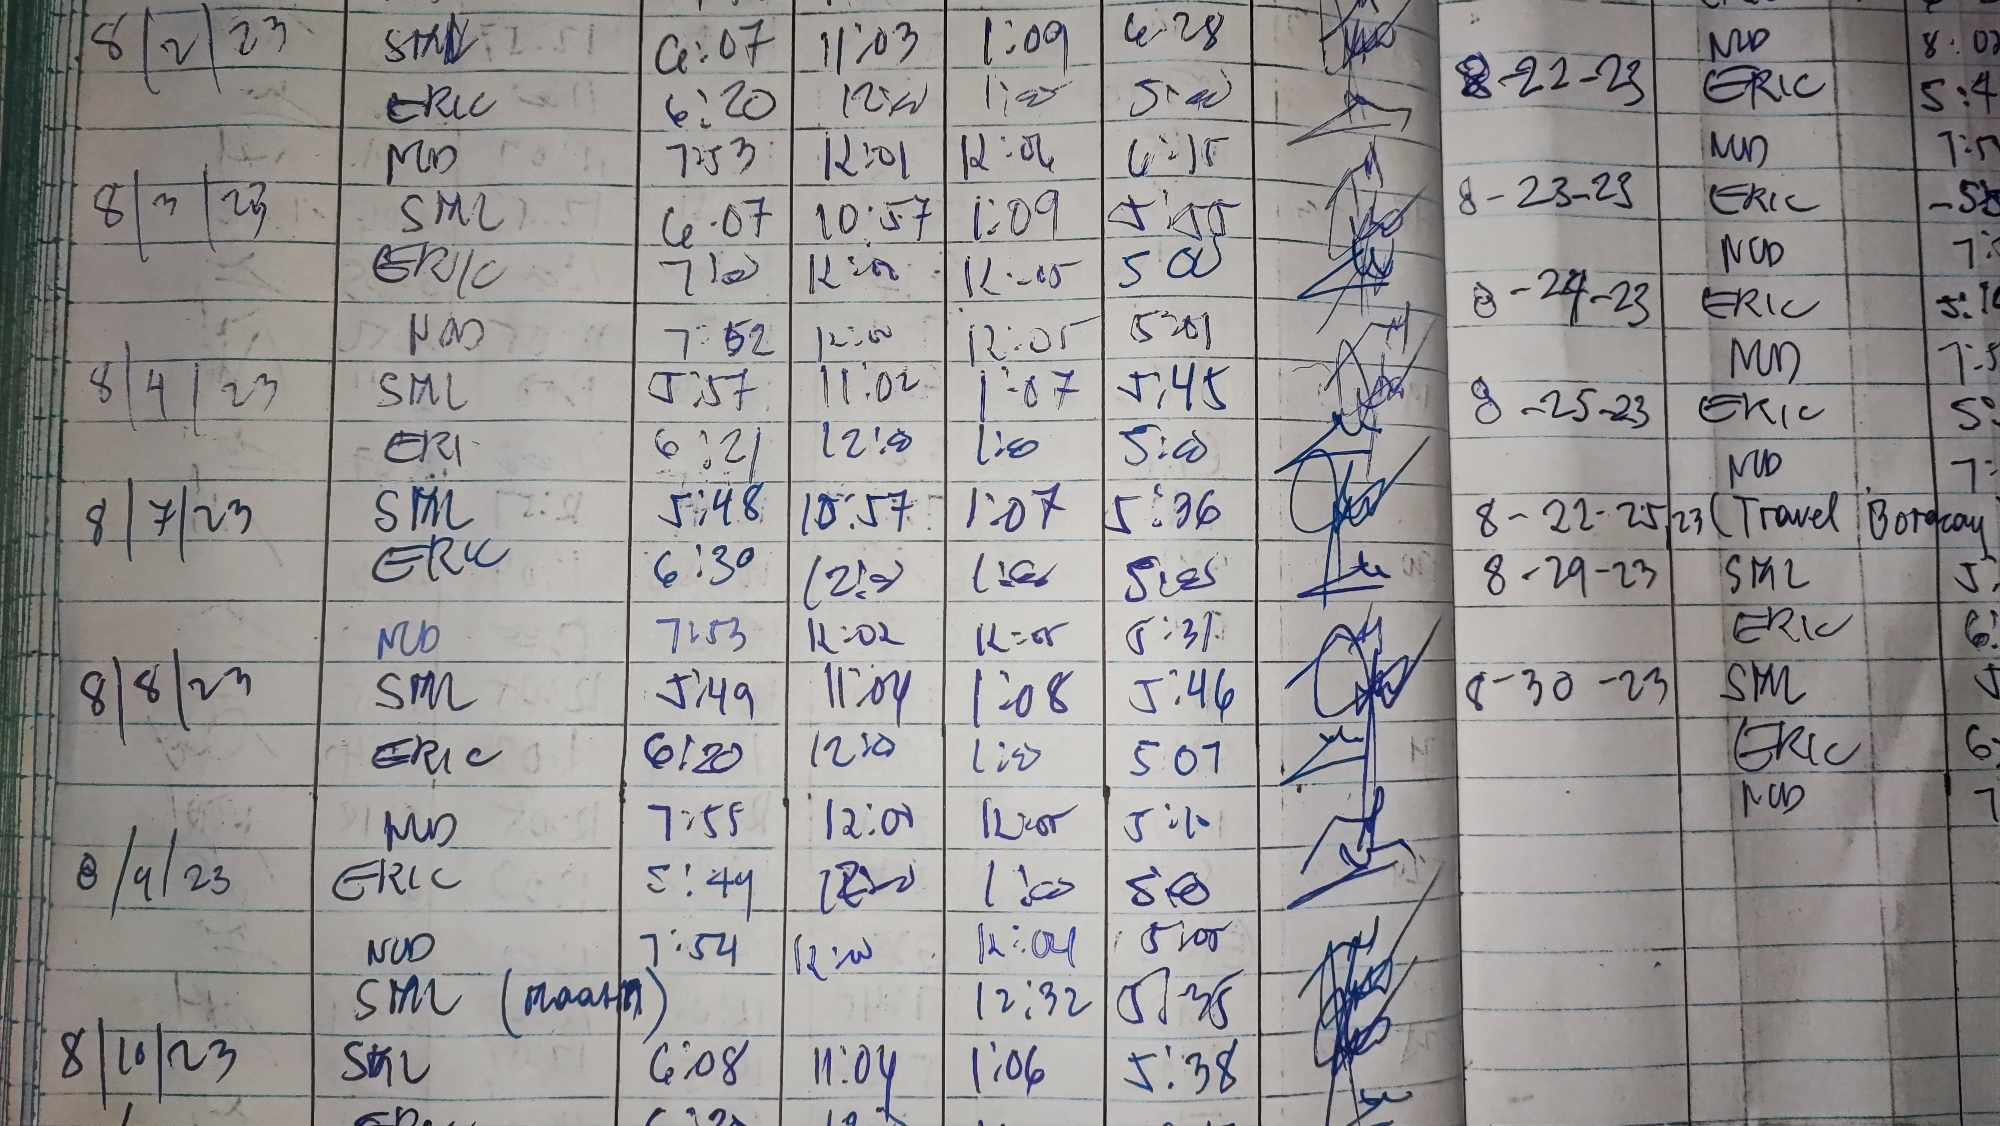 8/2/23 SML 6:07 11:03 1:09 6:28
ERIC 6:20 12:00 1:00 5:00
NUD 7:53 12:01 12:06 6:15
8/3/23 SML 6:07 10:57 1:09 5:55
ERIC 7:00 12:00 12:05 5:00
NUD 7:52 12:00 12:05 5:01
8/4/23 SML 5:57 11:02 1:07 5:45
ERI 6:21 12:00 1:00 5:00
8/7/23 SML 5:48 10:57 1:07 5:36
ERIC 6:30 12:00 1:00 5:05
NUD 7:53 12:02 12:05 5:31
8/8/23 SML 5:49 11:04 1:08 5:46
ERIC 6:20 12:00 1:00 5 07
NUD 7:55 12:00 12:05
8/9/23 ERIC 5:49 12:00 1:00 5:00
NUD 7:54 12:00 12:04 5:05
SML 12:32 5:35
8/10/23 SML 6:08 11:04 1:06 5:38
ERIC
NUD 8:02
8-22-23 ERIC 5:4
NUD 7:5
8-23-23 ERIC
NUD 7:
8-24-23 ERIC
NUD 7:5
8-25-23 ERIC 5:
NUD 7:
8-22-25/23 (Travel Boracay
8-29-23 SML 5:
ERIC 6:
8-30-23 SML 5
ERIC 6:
NUD 7